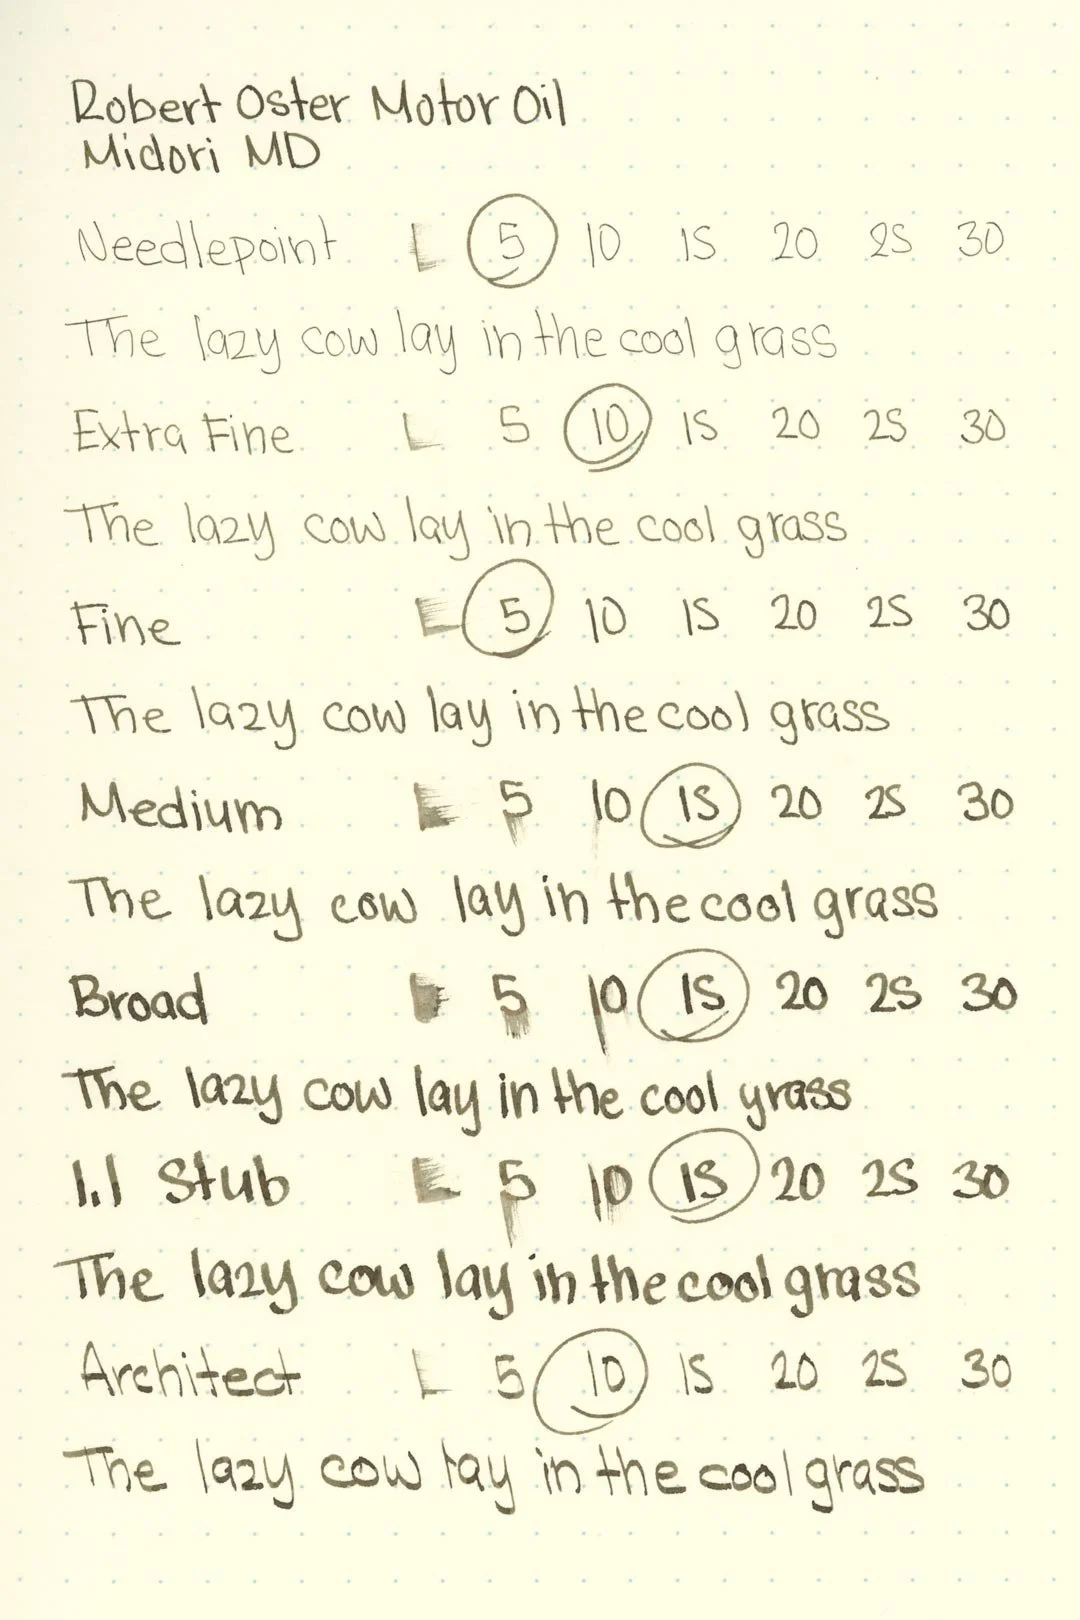 Robert Oster Motor Oil
Midori MD
Needlepoint L 5 10 15 20 25 30
The lazy cow lay in the cool grass
Extra Fine L 5 10 15 20 25 30
The lazy cow lay in the cool grass
Fine L 5 10 15 20 25 30
The lazy cow lay in the cool grass
Medium L 5 10 15 20 25 30
The lazy cow lay in the cool grass
Broad L 5 10 15 20 25 30
The lazy cow lay in the cool grass
1.1 Stub L 5 10 15 20 25 30
The lazy cow lay in the cool grass
Architect L 5 10 15 20 25 30
The lazy cow lay in the cool grass